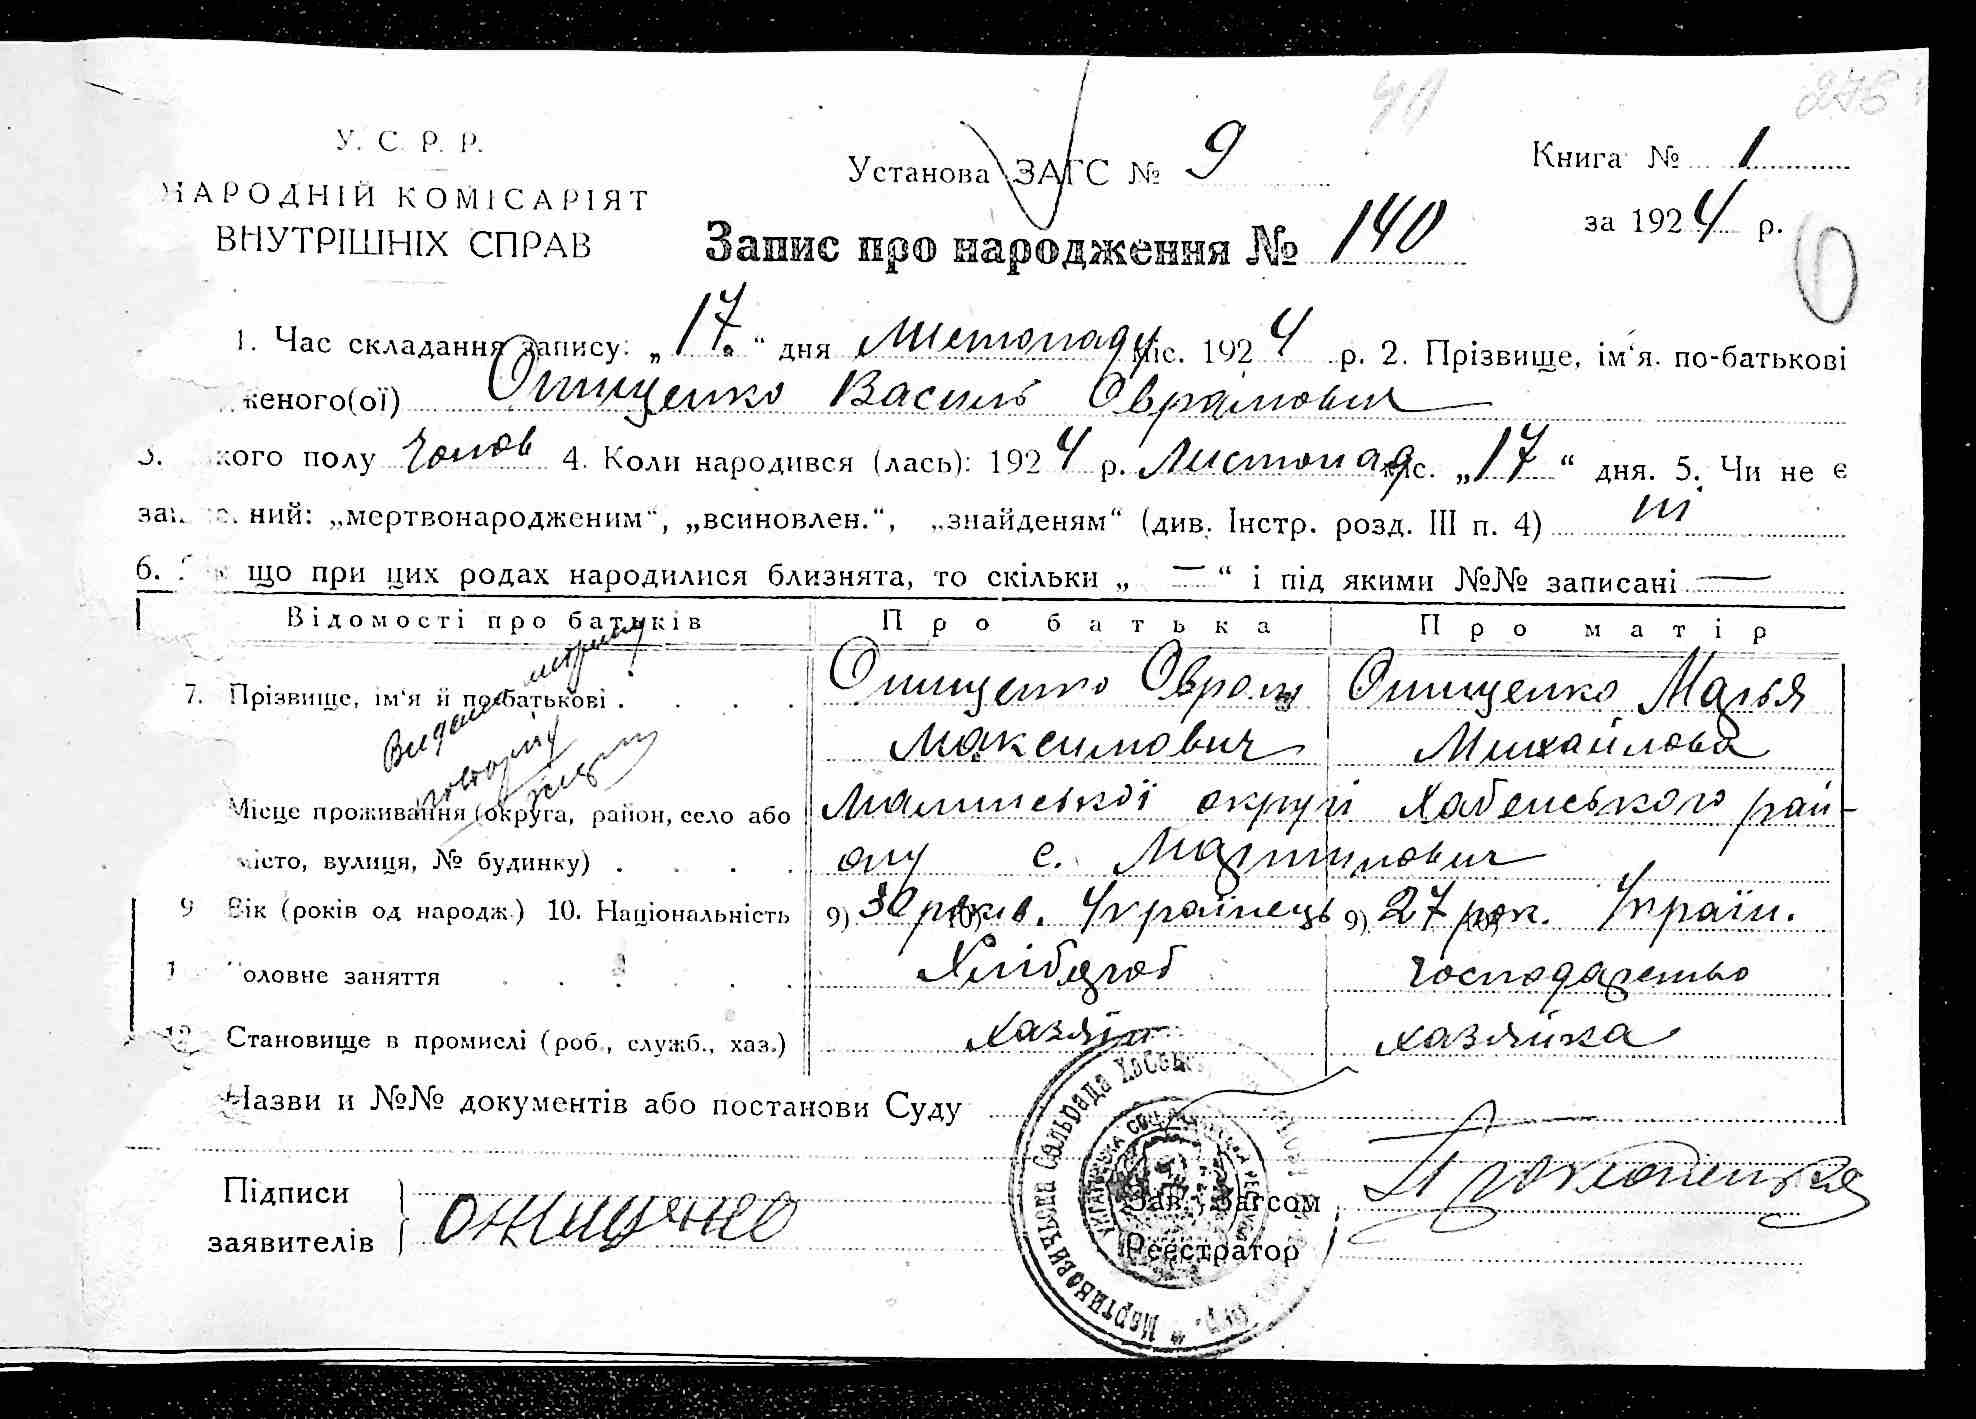 У. С. Р. Р.
НАРОДНІЙ КОМІСАРІЯТ
ВНУТРІШНІХ СПРАВ
Установа ЗАГС № 9
Книга № 1
за 1924 р.
Запис про народження № 140
1. Час складання запису: „17.“ дня Листопаду міс. 1924 р. 2. Прізвище, ім‘я. по-батькові
женого(ої) Онищенко Василь Оврамович
3. кого полу Чолов 4. Коли народився (лась): 1924 р. Листопад міс. „17“ дня. 5. Чи не є
ний: „мертвонародженим“, „всиновлен.“, „знайденям“ (див. Інстр. розд. III п. 4) ні
6. що при цих родах народилися близнята, то скільки „ — “ і під якими №№ записані —
Відомості про батьків Про батька Про матір
7. Прізвище, ім‘я й по-батькові . . . . Онищенко Оврам Онищенко Марья
Максимович Михайлова
Видано метрику
повторну
Місце проживання (округа, район, село або Малинської округи Хабенського рай-
місто, вулиця, № будинку) . . . . ону с. Мартинович
9 Вік (років од народж.) 10. Національність 9) 30 років. 10) Українець 9) 27 рок. 10) Україн.
1 Головне заняття . . . . . Хлібороб господарство
12 Становище в промислі (роб., служб., хаз.) хазяїн хазяйка
Назви и №№ документів або постанови Суду
Підписи
заявителів
Онищенко
Зав. Загсом
Реєстратор
Мартиновичська Сельрада